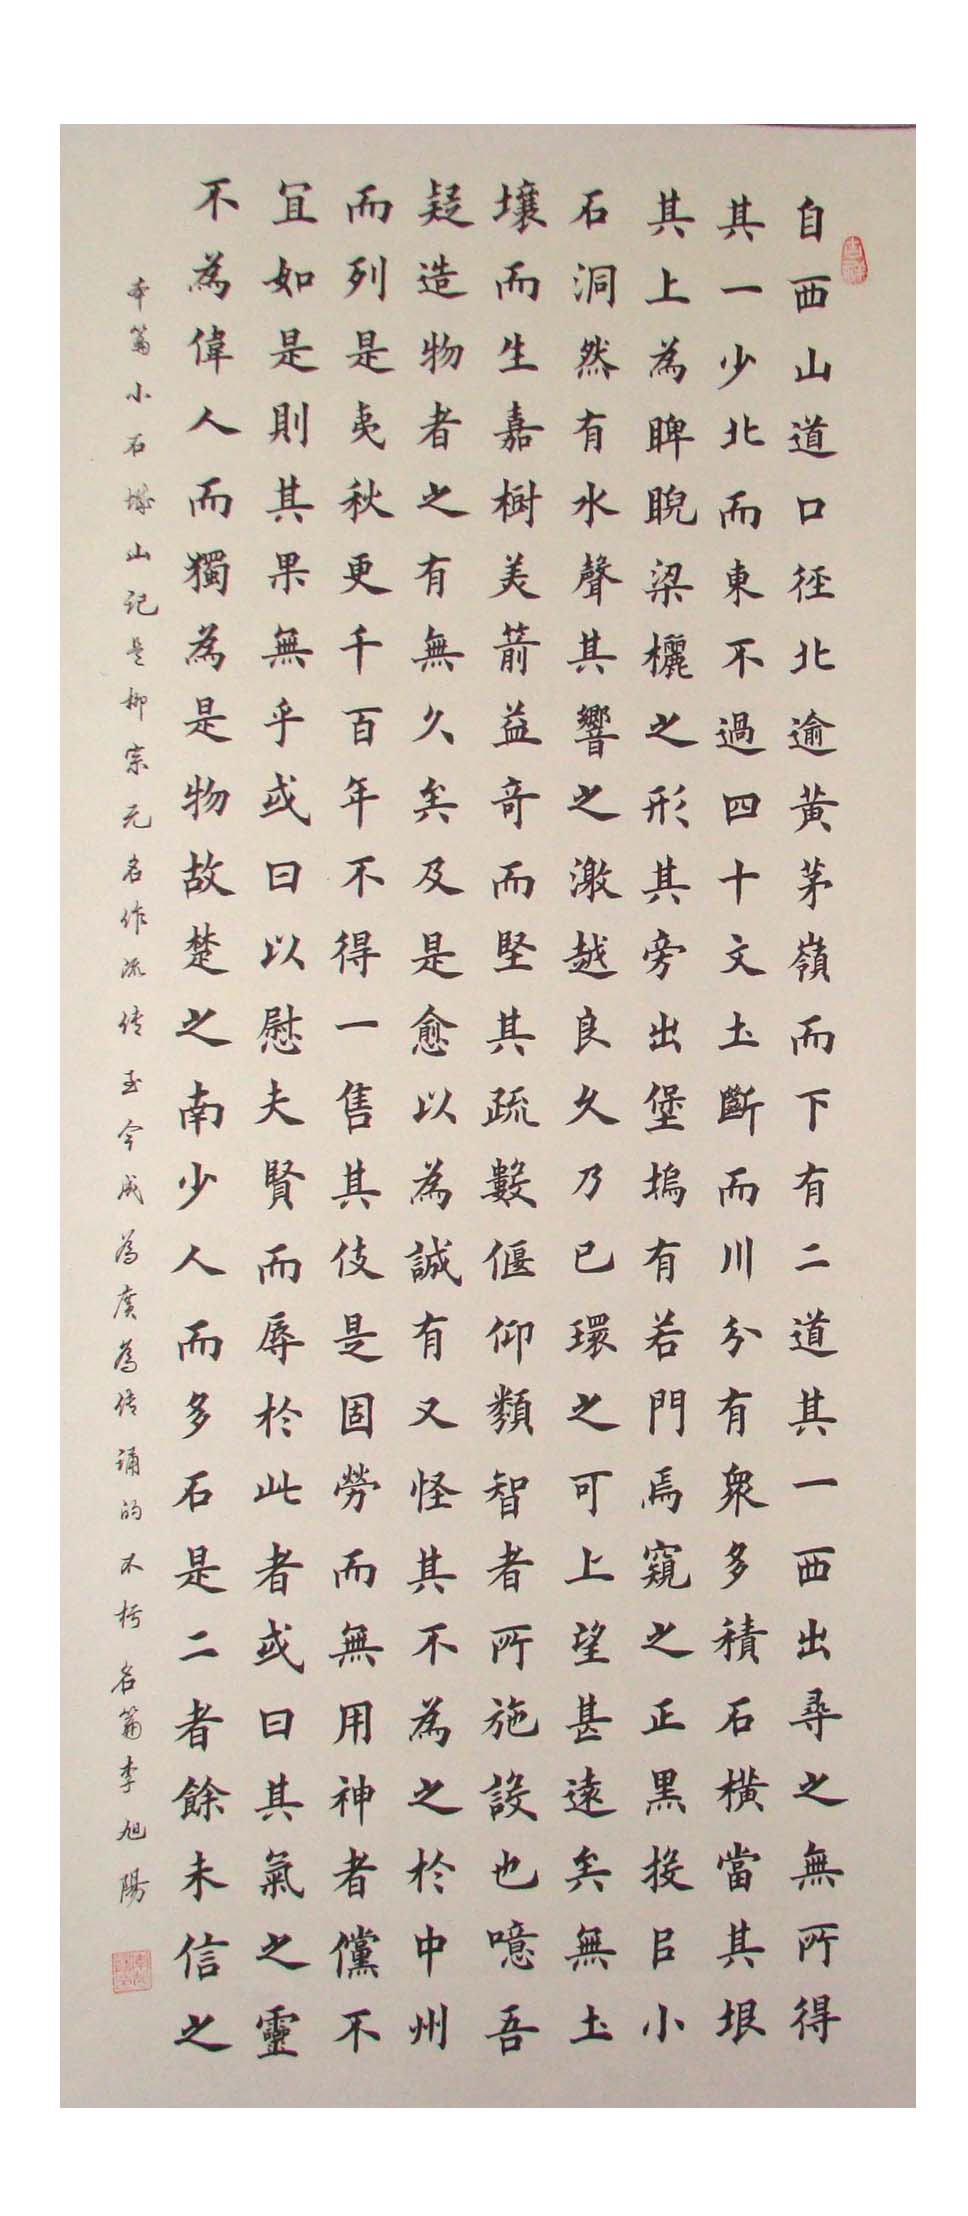 自西山道口徑北逾黃茅嶺而下有二道其一西出尋之無所得
其一少北而東不過四十文土斷而川分有衆多積石橫當其垠
其上為睥睨梁欐之形其旁出堡塢有若門焉窺之正黑投吕小
石洞然有水聲其響之激越良久乃已環之可上望甚遠矣無土
壤而生嘉樹美箭益奇而堅其疏數偃仰類智者所施設也噫吾
疑造物者之有無久矣及是愈以為誠有又怪其不為之於中州
而列是夷秋更千百年不得一售其伎是固勞而無用神者儻不
宜如是則其果無乎或曰以慰夫賢而辱於此者或曰其氣之靈
不為偉人而獨為是物故楚之南少人而多石是二者餘未信之
本篇小石城山记是柳宗元名作流传至今成為廣為传诵的不朽名篇李旭陽